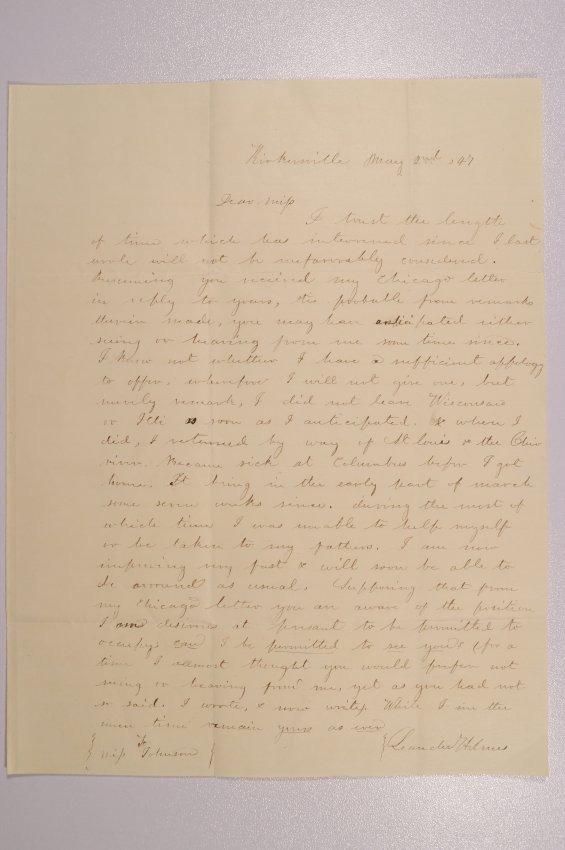 Kirkersville May 2nd 1847
Dear Miss
I trust the length
of time which has intervened since I last
wrote will not be unfavorably considered.
Presuming you recieved my Chicago letter
in reply to yours, tis probable from remarks
therein made, you may have anticipated either
seeing or hearing from me some time since.
I know not whether I have a sufficient appology
to offer. wherefore I will not give one, but
merely remark, I did not leave Wisconsin
or Ills as soon as I anticipated. & when I
did, I returned by way of St louis & the Ohio
river. Became sick at Columbus before I got
home. It being in the early part of march
some seven weeks since. during the most of
which time I was unable to help myself
or be taken to my fathers. I am now
improving very fast & will soon be able to
be arround as usual. Supposing that from
my Chicago letter you are aware of the position
I am desirous at present to be permitted to
occupy. can I be permitted to see you? (for a
time I allmost thought you would prefer not
seeing or hearing from me, yet as you had not
so said. I wrote, & now write. While I in the
mean time remain yours as ever
Miss Johnson
Leander Holmes